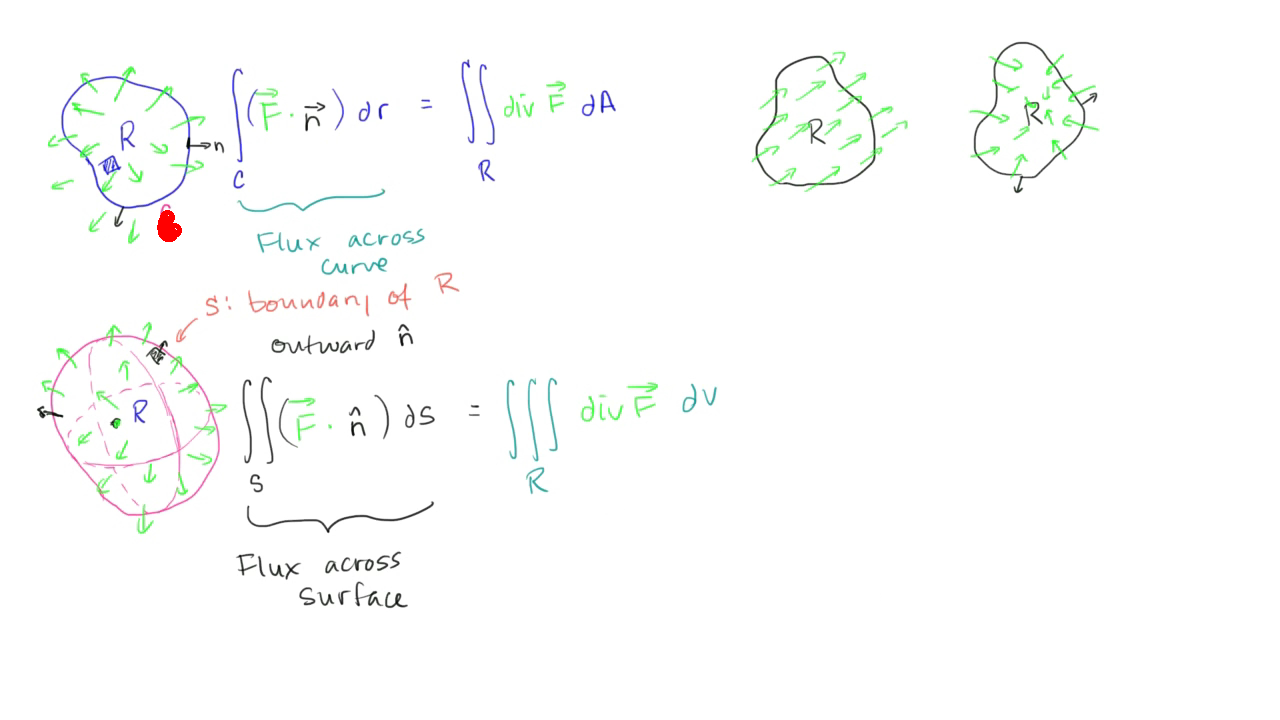 R
n
∫ (F⃗ · n⃗) dr = ∬ div F⃗ dA
C
R
Flux across
curve
R
R
S: boundary of R
outward n̂
R
∬ (F⃗ · n̂) ds = ∭ div F⃗ dv
S
R
Flux across
surface